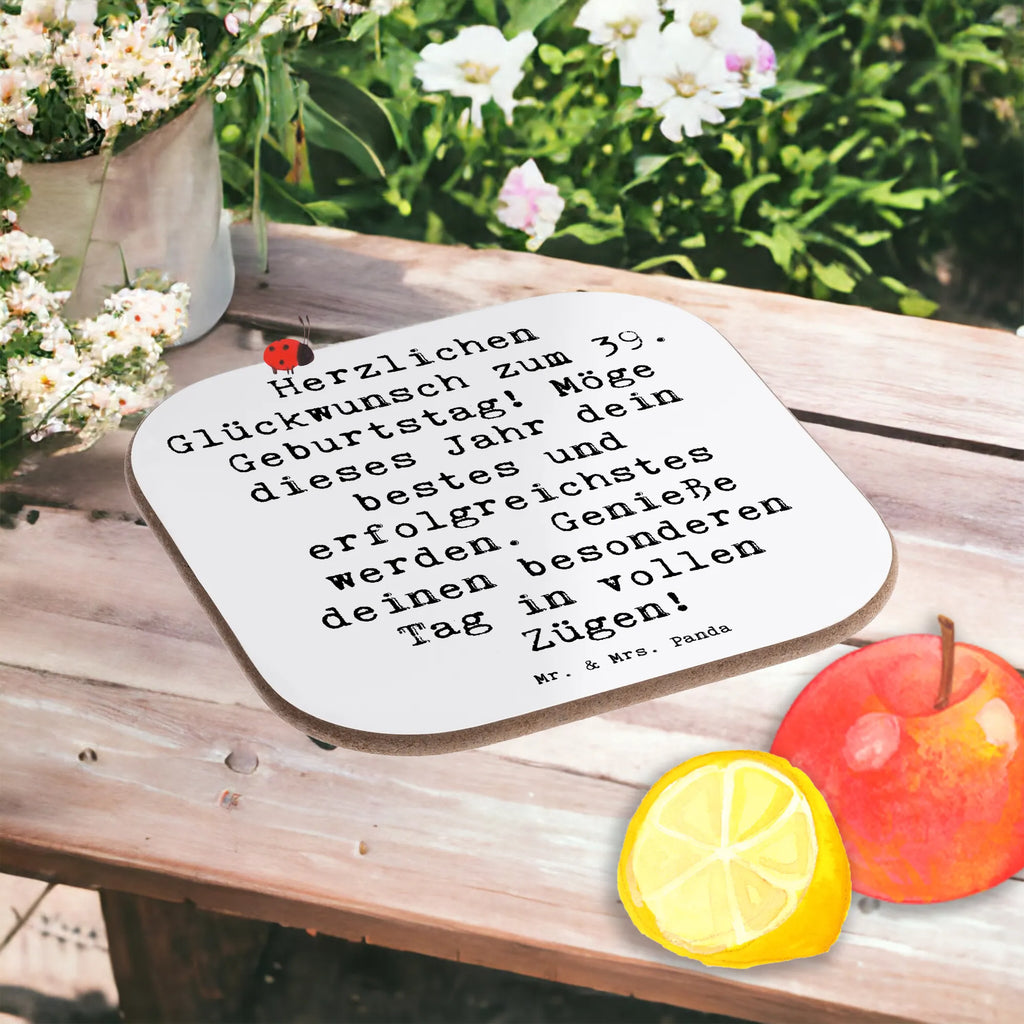 Herzlichen
Glückwunsch zum 39.
Geburtstag! Möge
dieses Jahr dein
bestes und
erfolgreichstes
werden. Genieße
deinen besonderen
Tag in vollen
Zügen!
Mr. & Mrs. Panda